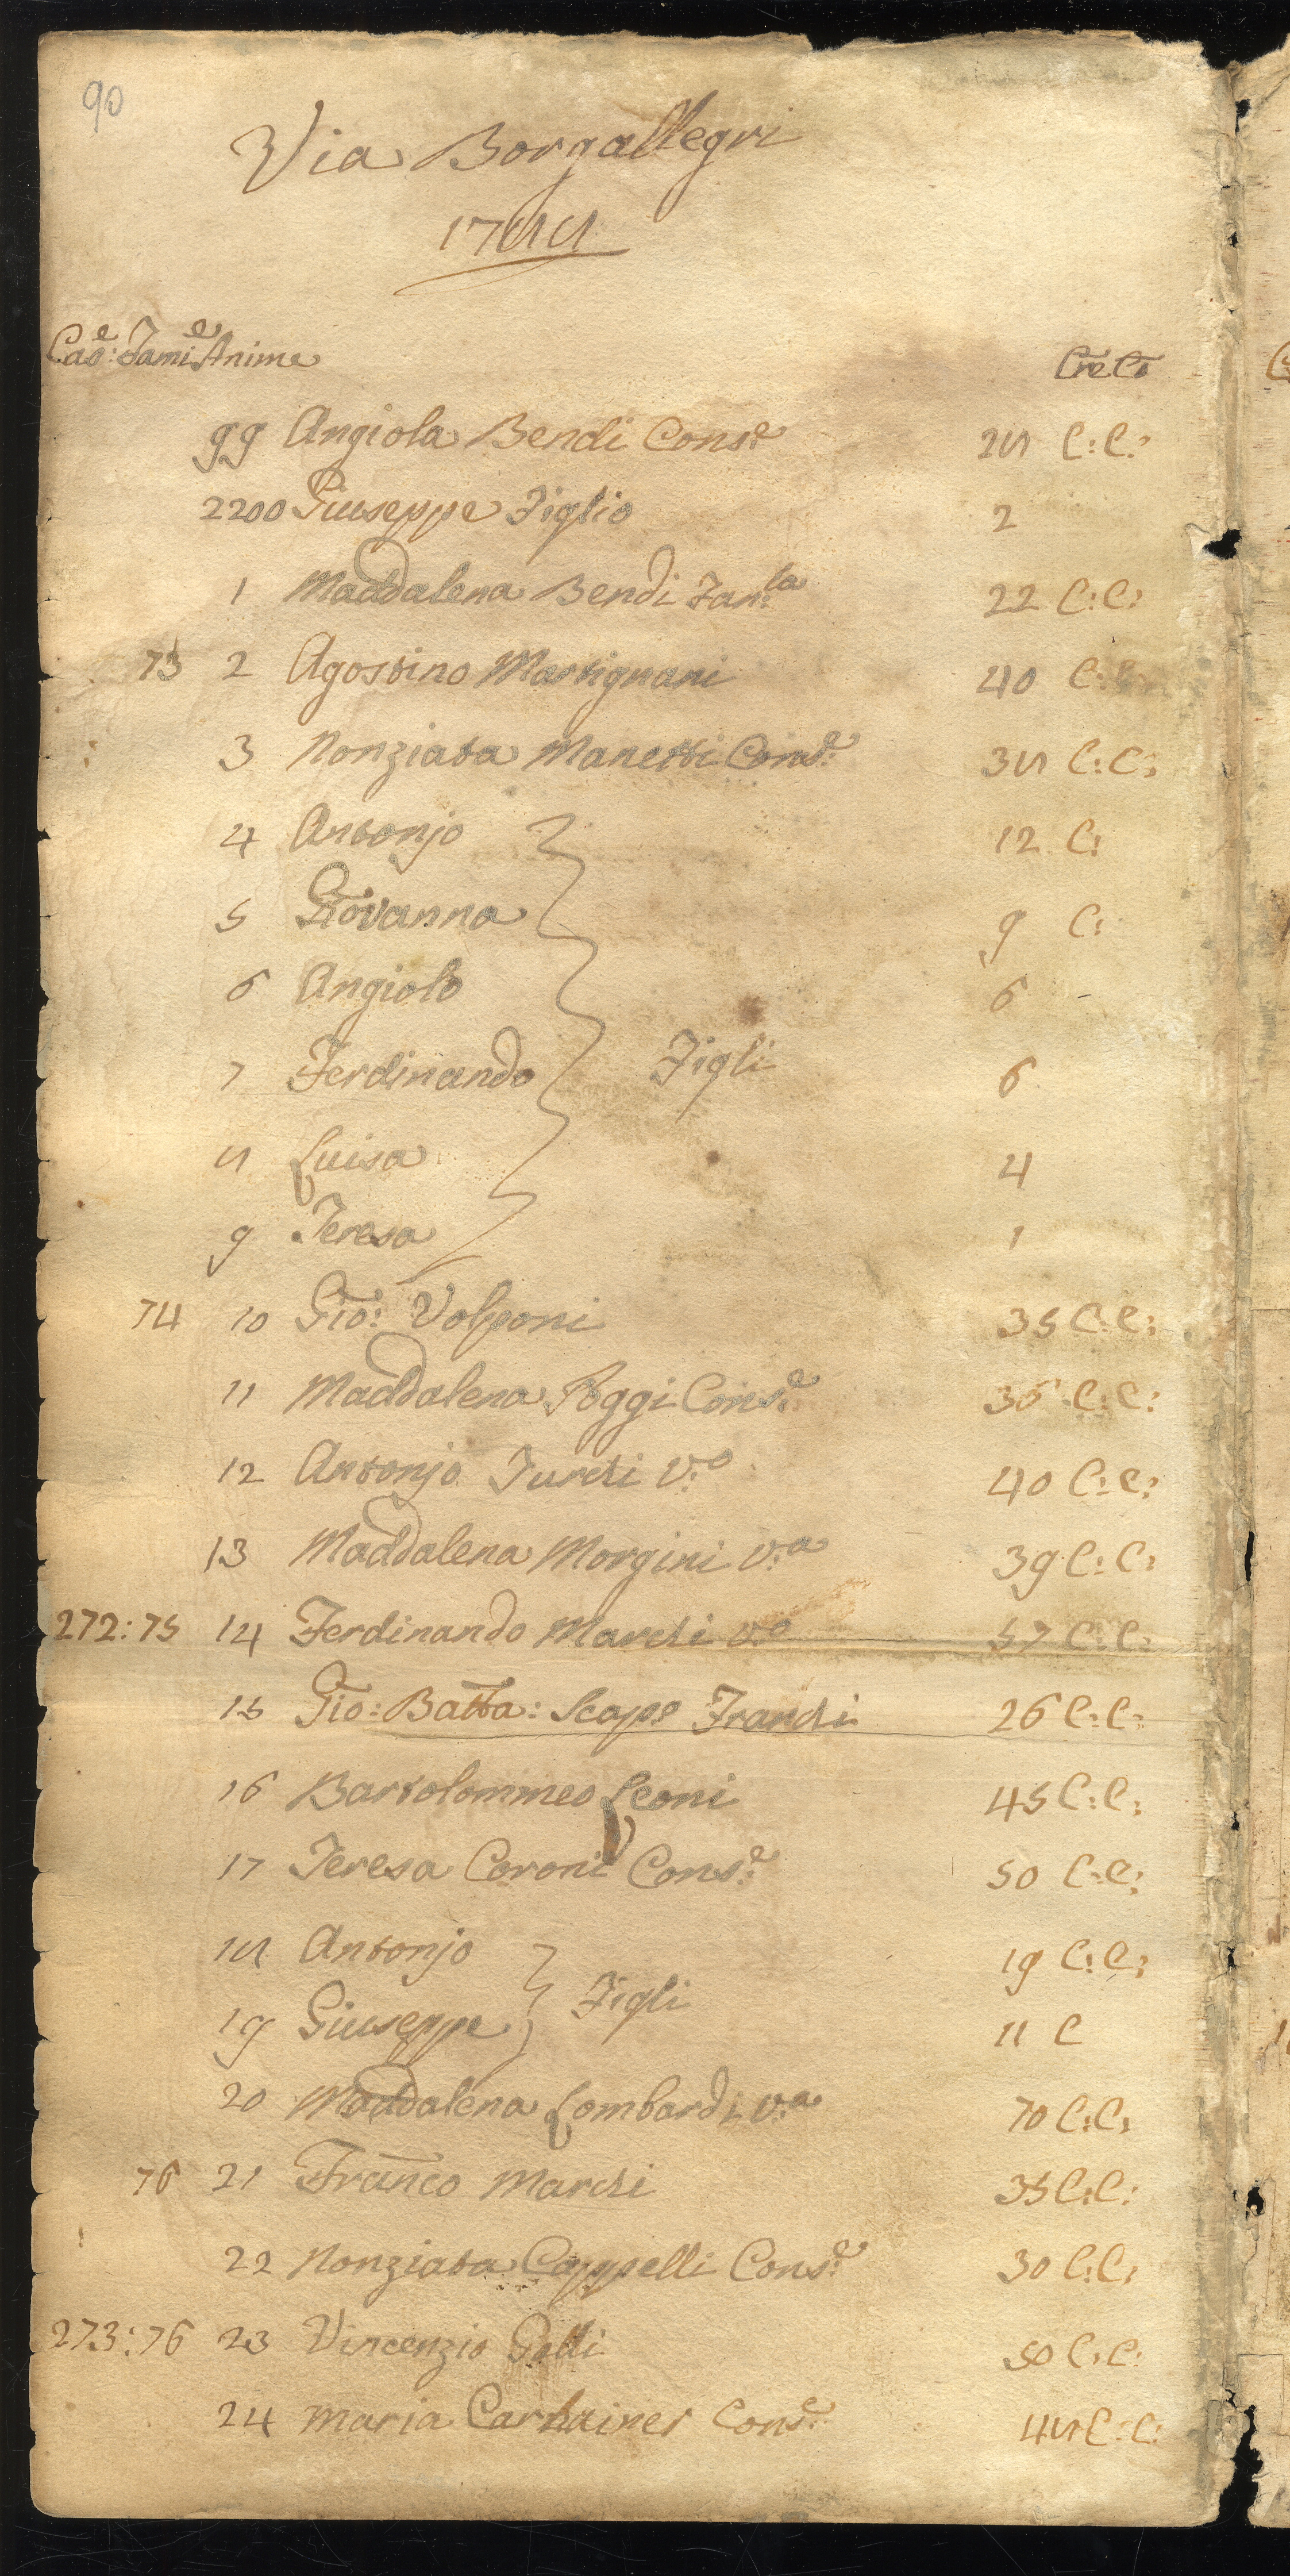 90
Via Borgallegri
1788
Cas:e Fami:e Anime Cre: Co:
99 Angiola Bendi Cons:e 28 C: C:
2200 Giuseppe Figlio 2
1 Maddalena Bendi Fan:la 22 C: C:
73 2 Agostino Martignani 40 C: C:
3 Nonziata Manetti Cons:e 38 C: C:
4 Antonjo 12 C:
5 Giovanna 9 C:
6 Angiolo 6
7 Ferdinando Figli 6
8 Luisa 4
9 Teresa 1
74 10 Gio: Volponi 35 C: C:
11 Maddalena Poggi Cons:e 36 C: C:
12 Antonjo Turchi V:o 40 C: C:
13 Maddalena Morgini V:a 39 C: C:
272: 75 14 Ferdinando Marchi V:o 57 C: C:
15 Gio: Batta: Scapo Franchi 26 C: C:
16 Bartolommeo Leoni 45 C: C:
17 Teresa Coroni Cons:e 50 C: C:
18 Antonjo 19 C: C:
19 Giuseppe Figli 11 C
20 Maddalena Lombardi V:a 70 C: C:
76 21 Franco Marchi 35 C: C:
22 Nonziata Cappelli Cons:e 30 C: C:
273: 76 23 Vincenzio 50 C: C:
24 Maria Carhainer Cons:e 48 C: C: